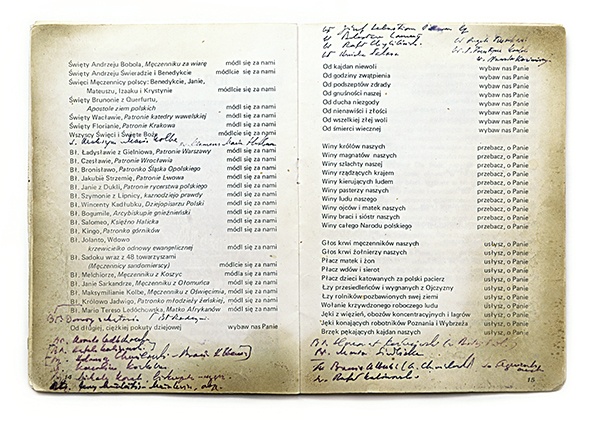 Święty Andrzeju Bobola, Męczenniku za wiarę módl się za nami
Święty Andrzeju Świeradzie i Benedykcie módlcie się za nami
Święci Męczennicy polscy: Benedykcie, Janie,
Mateuszu, Izaaku i Krystynie módlcie się za nami
Święty Brunonie z Querfurtu,
Apostole ziem polskich módl się za nami
Święty Wacławie, Patronie katedry wawelskiej módl się za nami
Święty Florianie, Patronie Krakowa módl się za nami
Wszyscy Święci i Święte Boże módlcie się za nami
Bł. Ładysławie z Gielniowa, Patronie Warszawy módl się za nami
Bł. Czesławie, Patronie Wrocławia módl się za nami
Bł. Bronisławo, Patronko Śląska Opolskiego módl się za nami
Bł. Jakubie Strzemię, Patronie Lwowa módl się za nami
Bł. Janie z Dukli, Patronie rycerstwa polskiego módl się za nami
Bł. Szymonie z Lipnicy, kaznodziejo prawdy módl się za nami
Bł. Wincenty Kadłubku, Dziejopisarzu Polski módl się za nami
Bł. Bogumile, Arcybiskupie gnieźnieński módl się za nami
Bł. Salomeo, Księżno Halicka módl się za nami
Bł. Kingo, Patronko górników módl się za nami
Bł. Jolanto, Wdowo
krzewicielko odnowy ewangelicznej módl się za nami
Bł. Sadoku wraz z 48 towarzyszami
(Męczennicy sandomierscy) módlcie się za nami
Bł. Melchiorze, Męczenniku z Koszyc módl się za nami
Bł. Janie Sarkandrze, Męczenniku z Ołomuńca módl się za nami
Bł. Maksymilianie Kolbe, Męczenniku z Oświęcimia, módl się za nami
Bł. Królowo Jadwigo, Patronko młodzieży żeńskiej, módl się za nami
Bł. Mario Tereso Ledóchowska, Matko Afrykanów módl się za nami
Od długiej, ciężkiej pokuty dziejowej wybaw nas Panie
Od kajdan niewoli wybaw nas Panie
Od godziny zwątpienia wybaw nas Panie
Od podszeptów zdrady wybaw nas Panie
Od gnuśności naszej wybaw nas Panie
Od ducha niezgody wybaw nas Panie
Od nienawiści i złości wybaw nas Panie
Od wszelkiej złej woli wybaw nas Panie
Od śmierci wiecznej wybaw nas Panie
Winy królów naszych przebacz, o Panie
Winy magnatów naszych przebacz, o Panie
Winy szlachty naszej przebacz, o Panie
Winy rządzących krajem przebacz, o Panie
Winy kierujących ludem przebacz, o Panie
Winy pasterzy naszych przebacz, o Panie
Winy ludu naszego przebacz, o Panie
Winy ojców i matek naszych przebacz, o Panie
Winy braci i sióstr naszych przebacz, o Panie
Winy całego Narodu polskiego przebacz, o Panie
Głos krwi męczenników naszych usłysz, o Panie
Głos krwi żołnierzy naszych usłysz, o Panie
Płacz matek i żon usłysz, o Panie
Płacz wdów i sierot usłysz, o Panie
Płacz dzieci katowanych za polski pacierz usłysz, o Panie
Łzy przesiedleńców i wygnanych z Ojczyzny usłysz, o Panie
Łzy rolników pozbawionych swej ziemi usłysz, o Panie
Wołanie krzywdzonego robotczego ludu usłysz, o Panie
Jęki z więzień, obozów koncentracyjnych i łagrów usłysz, o Panie
Jęki konających robotników Poznania i Wybrzeża usłysz, o Panie
Brzęk pękających kajdan naszych usłysz, o Panie
15